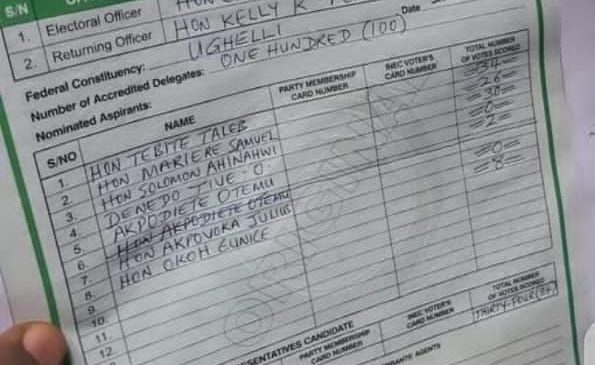 S/N
1. Electoral Officer HON
2. Returning Officer HON KELLY K
Federal Constituency: UGHELLI Date
Number of Accredited Delegates: ONE HUNDRED (100)
Nominated Aspirants:
S/NO NAME PARTY MEMBERSHIP CARD NUMBER INEC VOTER'S CARD NUMBER TOTAL NUMBER OF VOTES SCORED
1. HON TEBITE TALEB =34=
2. HON MARIERE SAMUEL =26=
3. HON SOLOMON AHINAHWI =30=
4. DENEDO TIVE-O. =0=
5. AKPODIETE OTEMU =2=
6. HON AKPODIETE OTEMU
7. HON AKPOVOKA JULIUS =0=
8. HON OKOH EUNICE =8=
9.
10.
11.
12.
ESENTATIVES CANDIDATE
PARTY MEMBERSHIP CARD NUMBER INEC VOTER'S CARD NUMBER TOTAL NUMBER OF VOTES SCORED
THIRTY-FOUR (34)
AGENTS
ORIGINAL